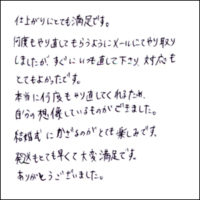 仕上がりにとても満足です。
何度もやり直してもらうようにメールにてやり取り
しましたが、すぐにいつも直して下さり 対応も
とてもよかったです。
本当に何度もやり直してくれるため、
自分の想像しているものができました。
結婚式にかざるのがとても楽しみです。
発送もとても早くて大変満足です。
ありがとうございました。